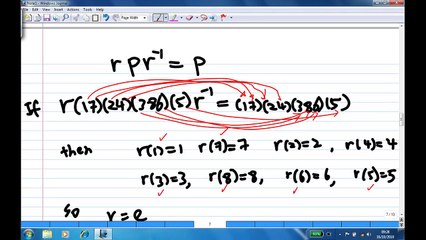 Note1 - Windows Journal
r p r⁻¹ = p
If r(17)(24)(386)(5)r⁻¹ = (17)(24)(386)(5)
then r(1)=1 r(7)=7 , r(2)=2 , r(4)=4
r(3)=3, r(8)=8, r(6)=6, r(5)=5
So r=e